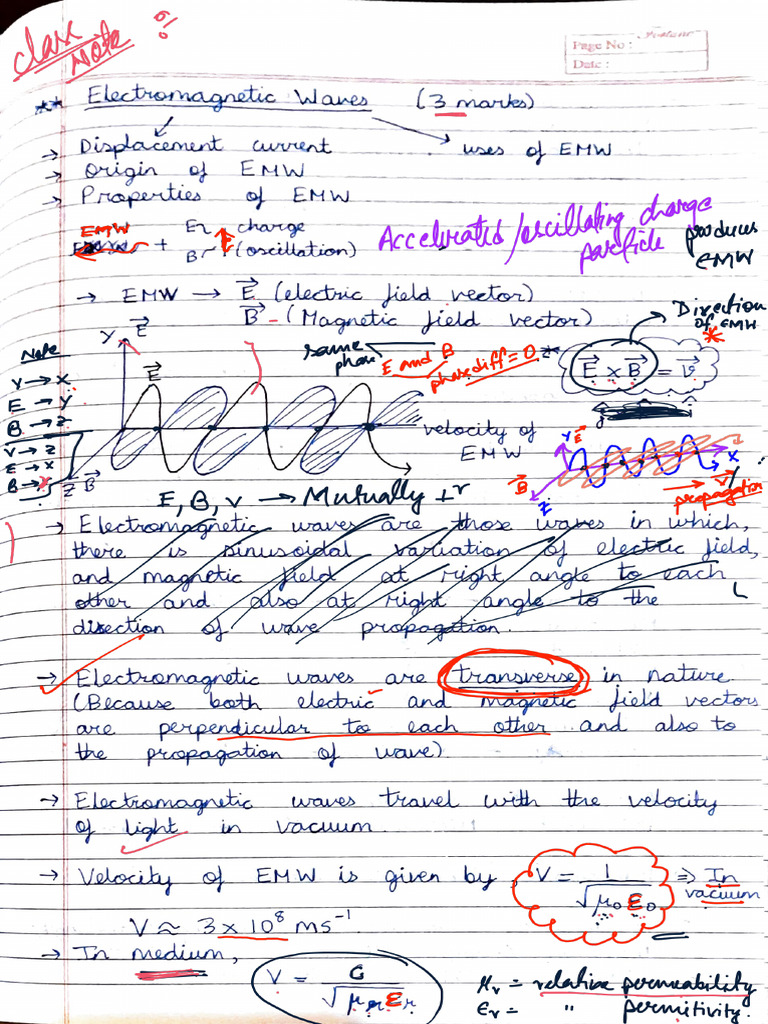 Class Note
Page No :
Date :
** Electromagnetic Waves (3 marks)
→ Displacement current → uses of EMW
→ Origin of EMW
→ Properties of EMW
EMW + E charge
B (oscillation)
Accelerated/oscillating charge particle produces EMW
→ EMW → E⃗ (electric field vector)
B⃗ - (Magnetic field vector)
Direction of EMW *
E⃗ × B⃗ = v⃗
same phase E and B phase diff = 0
Note
V → X
E → Y
B → Z
V → Z
E → X
B → Y
Y E⃗
E⃗
velocity of EMW
Z B⃗
Y E⃗
X
B⃗
Z
V⃗
propagation
E, B, V → Mutually ⊥r
→ Electromagnetic waves are those waves in which,
there is sinusoidal variation of electric field,
and magnetic field at right angle to each
other and also at right angle to the
direction of wave propagation.
→ Electromagnetic waves are transverse in nature
(Because both electric and magnetic field vectors
are perpendicular to each other and also to
the propagation of wave)
→ Electromagnetic waves travel with the velocity
of light in vacuum.
→ Velocity of EMW is given by, V = 1/√μ₀ε₀ ⇒ In vacuum
V ≈ 3 × 10⁸ ms⁻¹
→ In medium,
V = C/√μᵣεᵣ
μᵣ = relative permeability
εᵣ = " permitivity.